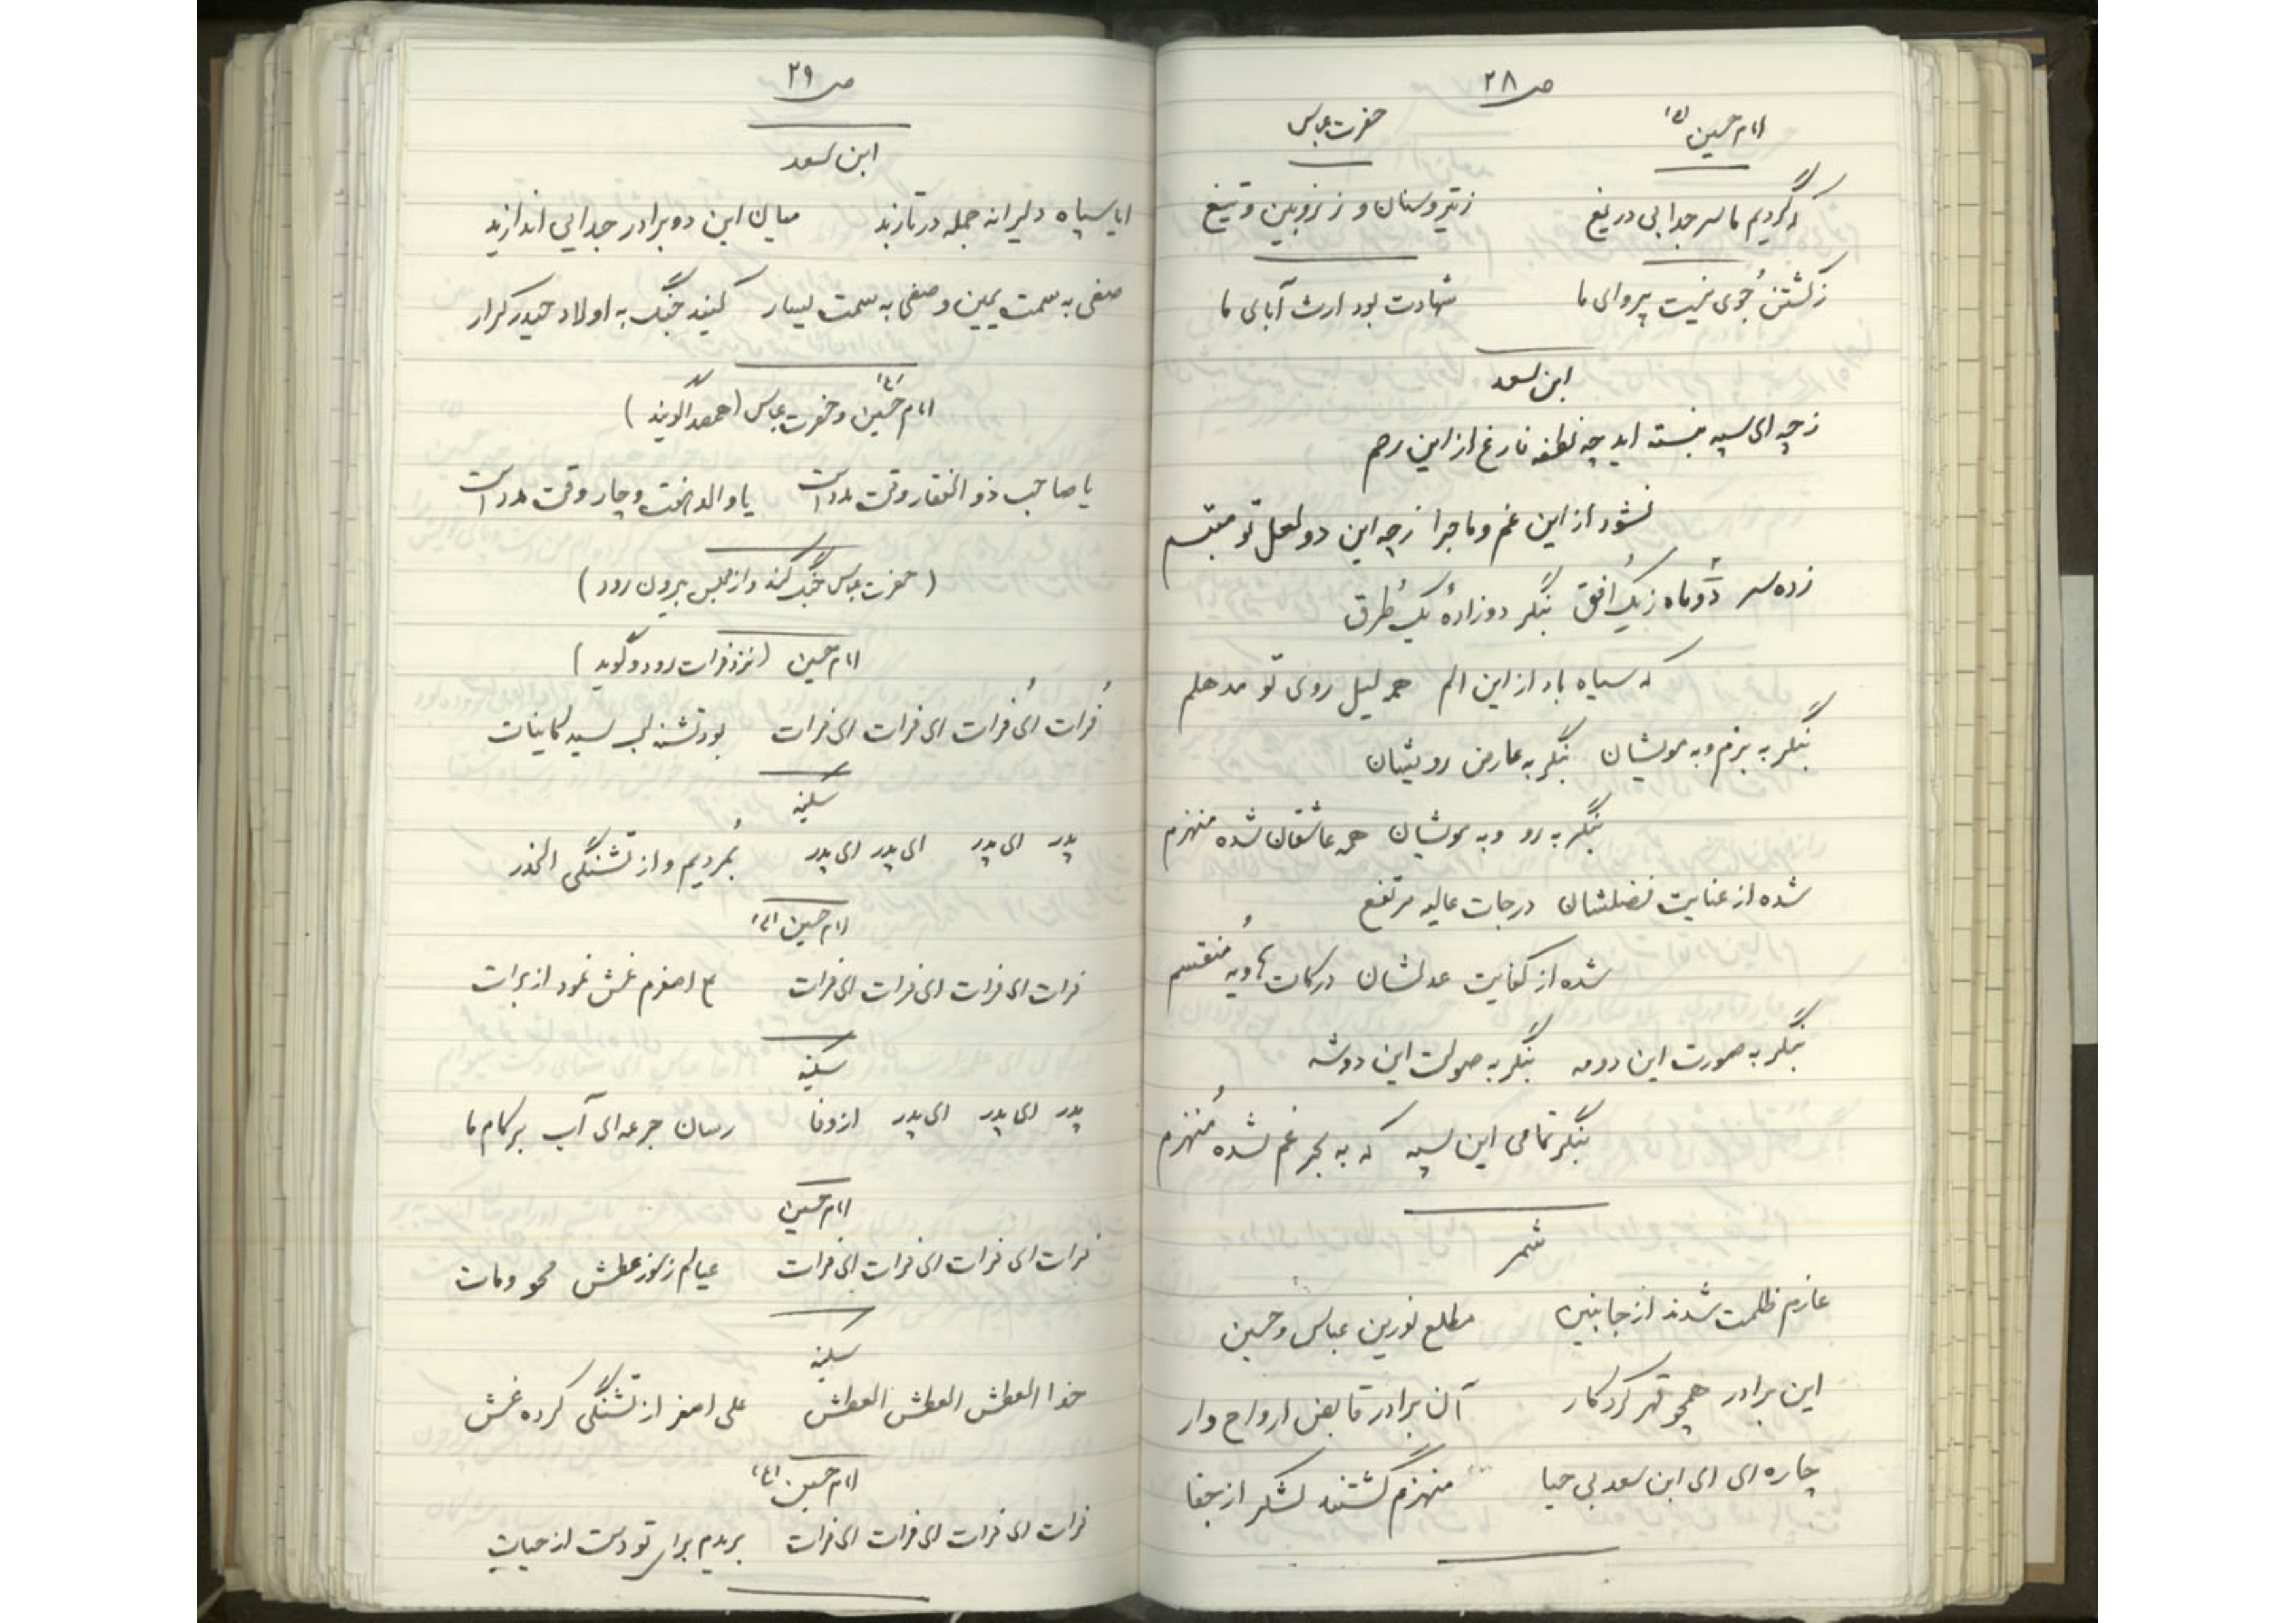 ص ۲۸
امام حسین (ع) حضرت عباس
که گردیم ما سر جدا بی دریغ ز تیر و سنان و ز زوبین و تیغ
ز کشتن جُوی نیست پروای ما شهادت بود ارث آبای ما
ابن سعد
ز چه ای سپه بنسته اید چه لطفه فارغ از این رهم
نشود از این غم و ماجرا ز چه این دو لعل تو مبتسم
زده سر دو ماه ز یک اُفق بنگر دو زادهٔ یک طُرق
که سیاه باد از این الم همه لیل روی تو مدهلم
بنگر به بزم و به مویشان بنگر به عارض رویشان
بنگر به رو و به مویشان همه عاشقان شده منهزم
شده از عنایت فضلشان درجات عالیه مرتفع
شده از کفایت عدلشان درکات هاویه مُنقسم
بنگر به صورت این دو مه بنگر به صولت این دو شه
بنگر تمامی این سپه که به بحر غم شده مُنهزم
شمر
عازم ظلمت شدند از جانبین مطلع نورین عباس و حسین
این برادر همچو قهر کردگار آن برادر قابض ارواح وار
چاره ای ای ابن سعد بی حیا منهزم گشتند لشکر از جفا
ص ۲۹
ابن سعد
ایا سپاه دلیرانه جمله در تازید میان این دو برادر جدایی اندازید
صفی به سمت یمین و صفی به سمت یسار کنید جنگ به اولاد حیدر کرار
امام حُسین (ع) و حضرت عباس (همصدا گویند)
یا صاحب ذوالفقار وقت مدد است یا والد هشت و چار وقت مدد است
(حضرت عباس جنگ کند و از مجلس بیرون رود)
امام حسین (نزد فرات رود و گوید)
فُرات ای فُرات ای فرات ای فرات بود تشنه لب سید کاینات
سکینه
پدر ای پدر ای پدر ای پدر بمُردیم و از تشنگی الحذر
امام حسین (ع)
فرات ای فرات ای فرات ای فرات اصغرم غش نمود از برات
سکینه
پدر ای پدر ای پدر از وفا رسان جرعه ای آب بر کام ما
امام حسین
فرات ای فرات ای فرات ای فرات عیالم ز سوز عطش محو و مات
سکینه
خدا العطش العطش العطش علی اصغر از تشنگی کرده غش
امام حسین (ع)
فرات ای فرات ای فرات ای فرات بریدم برای تو دست از حیات